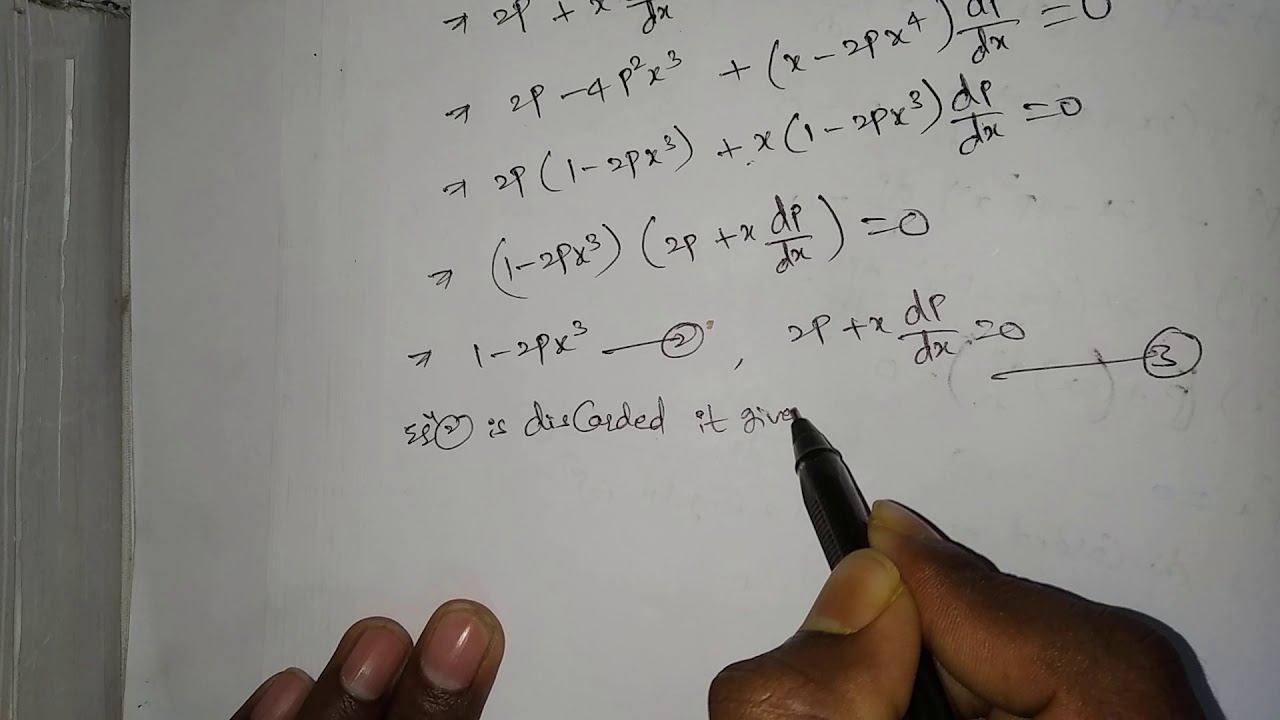 ⇒ 2p + x dp/dx
⇒ 2p - 4p²x³ + (x - 2px⁴) dp/dx = 0
⇒ 2p(1 - 2px³) + x(1 - 2px³) dp/dx = 0
⇒ (1 - 2px³) (2p + x dp/dx) = 0
⇒ 1 - 2px³ — ② , 2p + x dp/dx = 0 — ③
② is discarded it give